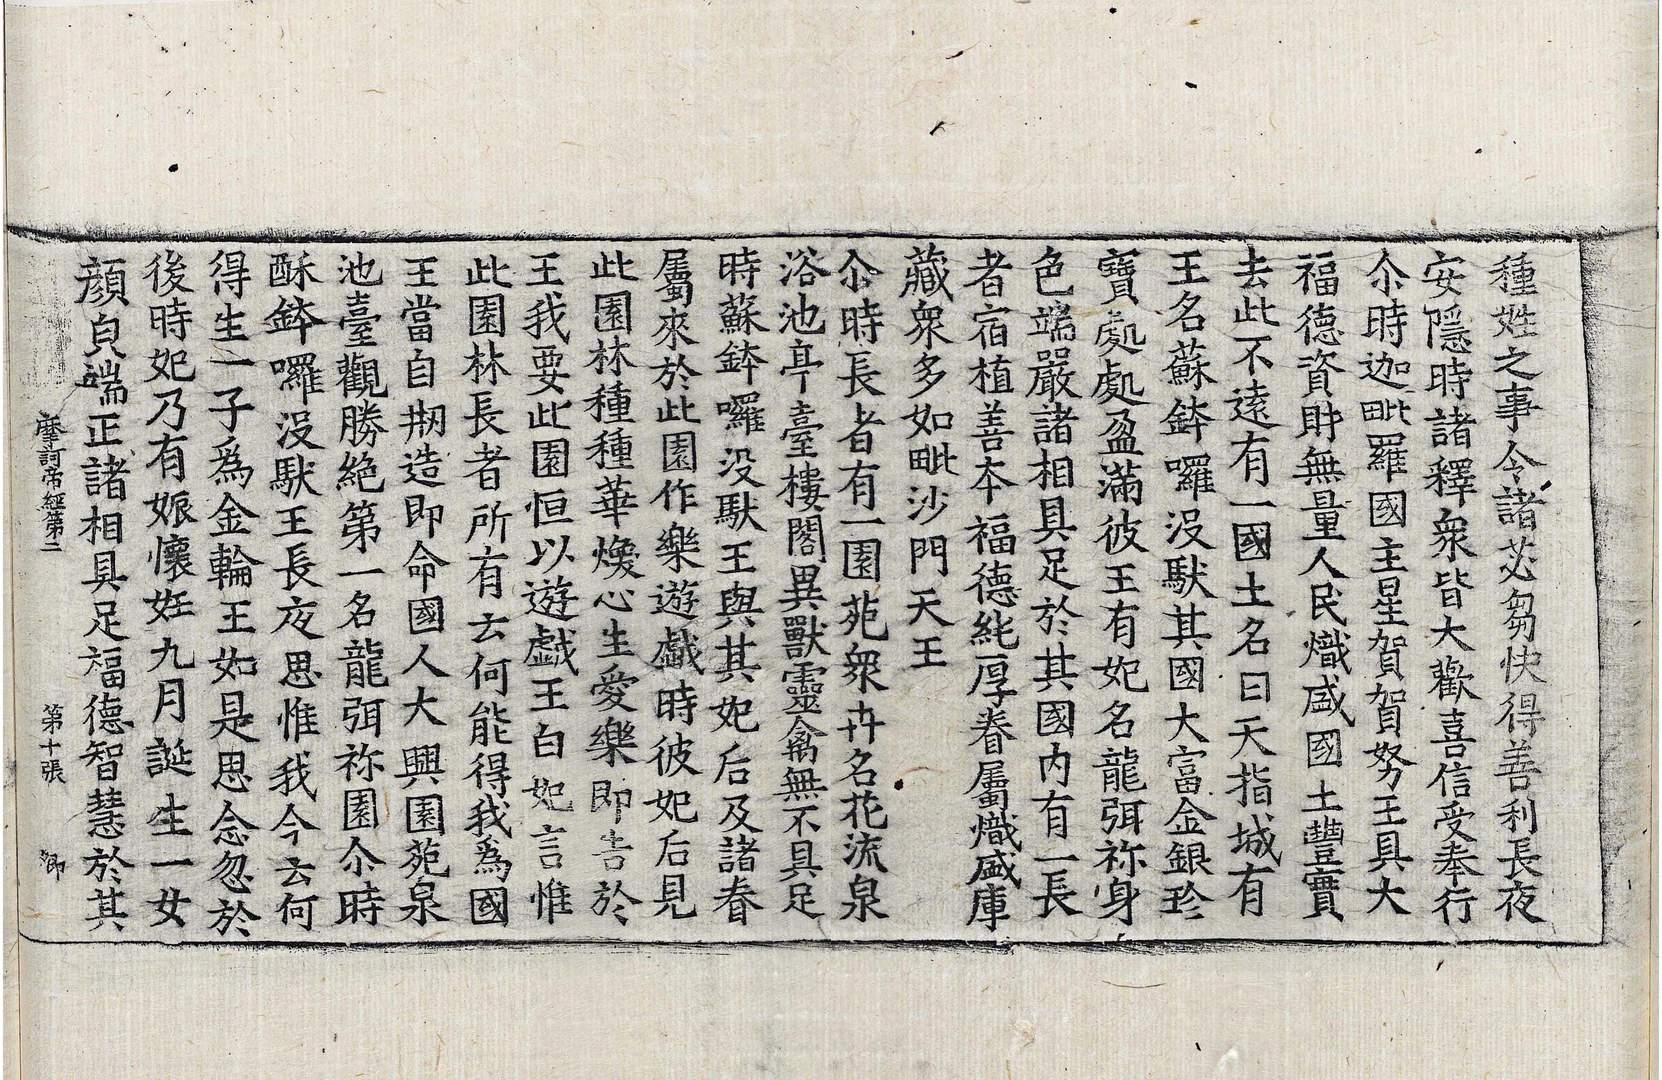 種姓之事令諸苾芻快得善利長夜
安隱時諸釋衆皆大歡喜信受奉行
尒時迦毗羅國主星賀賀努王具大
福德資財無量人民熾盛國土豐實
去此不遠有一國土名曰天指城有
王名蘇鉢囉没馱其國大富金銀珎
寶處處盈滿彼王有妃名龍弭祢身
色端嚴諸相具足於其國内有一長
者宿植善夲福德純厚眷屬熾盛庫
藏衆多如毗沙門天王
尒時長者有一園苑衆卉名花流泉
浴池亭臺樓閣異獸靈禽無不具足
時蘇鉢囉没馱王與其妃后及諸眷
屬來於此園作樂遊戲時彼妃后見
此園林種種華煥心生愛樂即告於
王我要此園恒以遊戲王白妃言惟
此園林長者所有云何能得我爲國
王當自剙造即命國人大興園苑泉
池臺觀勝絶第一名龍弭祢園尒時
酥鉢囉没馱王長夜思惟我今云何
得生一子爲金輪王如是思念忽於
後時妃乃有娠懷妊九月誕生一女
顔皃端正諸相具足福德智慧於其
摩訶帝經第二 第十張 卿